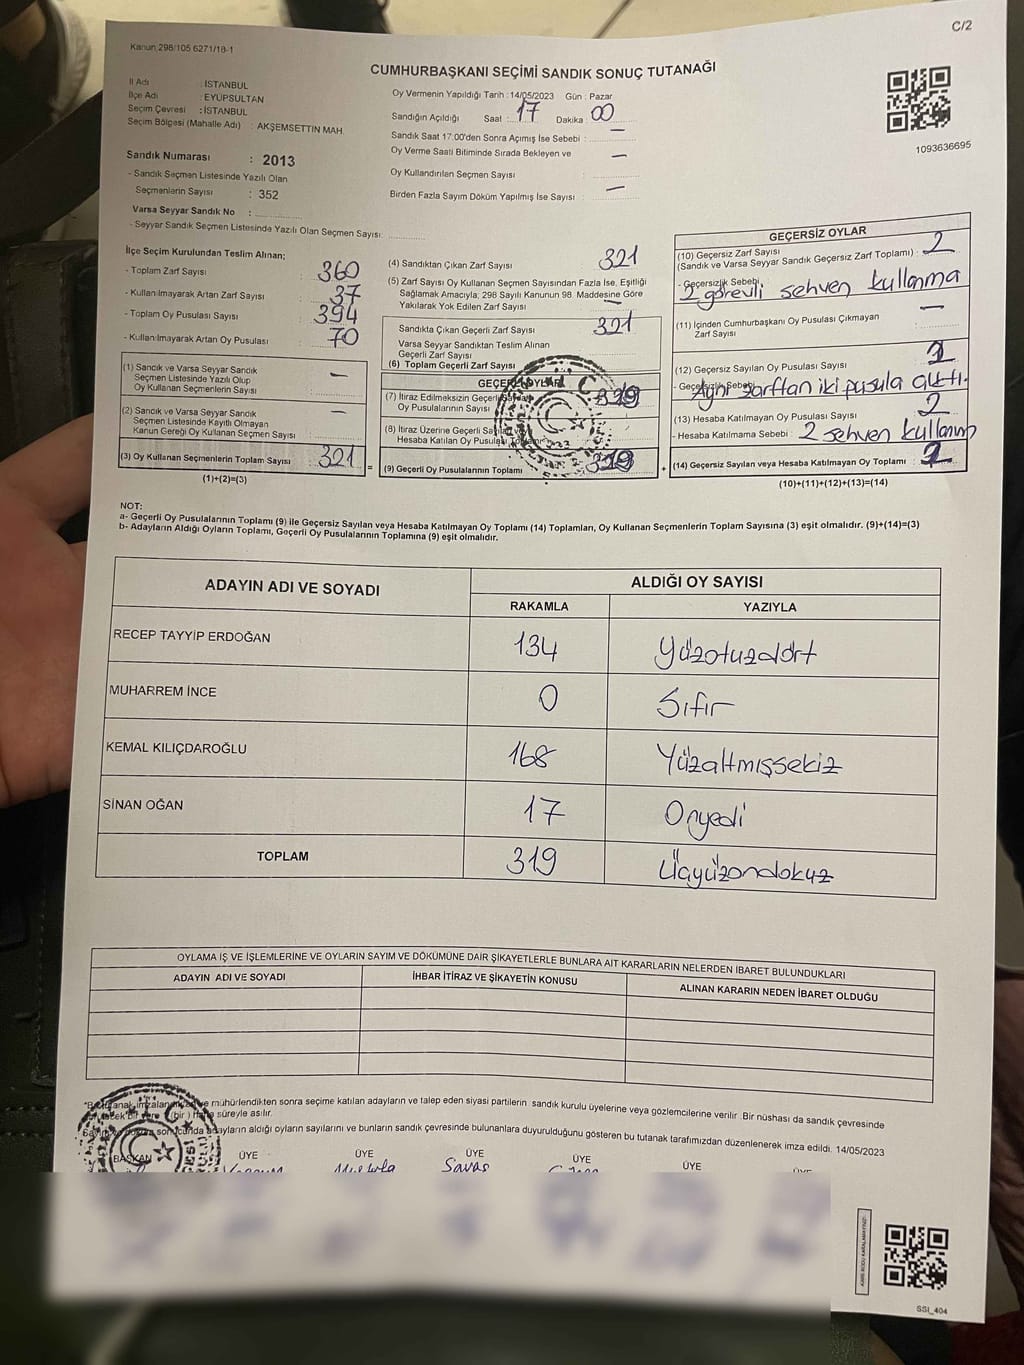 C/2
Kanun 298/105 6271/18-1
CUMHURBAŞKANI SEÇİMİ SANDIK SONUÇ TUTANAĞI
İl Adı : İSTANBUL
İlçe Adı : EYÜPSULTAN
Seçim Çevresi : İSTANBUL
Seçim Bölgesi (Mahalle Adı) : AKŞEMSETTİN MAH.
Sandık Numarası : 2013
- Sandık Seçmen Listesinde Yazılı Olan
Seçmenlerin Sayısı : 352
Varsa Seyyar Sandık No :
- Seyyar Sandık Seçmen Listesinde Yazılı Olan Seçmen Sayısı:
Oy Vermenin Yapıldığı Tarih : 14/05/2023 Gün : Pazar
Sandığın Açıldığı Saat : 17 Dakika : 00
Sandık Saat 17:00'den Sonra Açımış İse Sebebi : —
Oy Verme Saati Bitiminde Sırada Bekleyen ve —
Oy Kullandırılan Seçmen Sayısı :
Birden Fazla Sayım Döküm Yapılmış İse Sayısı : —
1093636695
İlçe Seçim Kurulundan Teslim Alınan;
- Toplam Zarf Sayısı : 360
- Kullanılmayarak Artan Zarf Sayısı : 37
- Toplam Oy Pusulası Sayısı : 394
- Kullanılmayarak Artan Oy Pusulası : 70
(1) Sandık ve Varsa Seyyar Sandık —
Seçmen Listesinde Yazılı Olup
Oy Kullanan Seçmenlerin Sayısı
(2) Sandık ve Varsa Seyyar Sandık —
Seçmen Listesinde Kayıtlı Olmayan
Kanun Gereği Oy Kullanan Seçmen Sayısı
(3) Oy Kullanan Seçmenlerin Toplam Sayısı 321
(1)+(2)=(3)
=
(4) Sandıktan Çıkan Zarf Sayısı 321
(5) Zarf Sayısı Oy Kullanan Seçmen Sayısından Fazla İse, Eşitliği
Sağlamak Amacıyla; 298 Sayılı Kanunun 98. Maddesine Göre
Yakılarak Yok Edilen Zarf Sayısı —
Sandıkta Çıkan Geçerli Zarf Sayısı 321
Varsa Seyyar Sandıktan Teslim Alınan
Geçerli Zarf Sayısı
(6) Toplam Geçerli Zarf Sayısı
GEÇERLİ OYLAR
(7) İtiraz Edilmeksizin Geçerli Sayılan
Oy Pusulalarının Sayısı 319
(8) İtiraz Üzerine Geçerli Sayılan veya
Hesaba Katılan Oy Pusulası Toplamı
(9) Geçerli Oy Pusulalarının Toplamı 319
+
GEÇERSİZ OYLAR
(10) Geçersiz Zarf Sayısı 2
(Sandık ve Varsa Seyyar Sandık Geçersiz Zarf Toplamı) :
- Geçersizlik Sebebi
2 görevli sehven kullanma
(11) İçinden Cumhurbaşkanı Oy Pusulası Çıkmayan —
Zarf Sayısı
(12) Geçersiz Sayılan Oy Pusulası Sayısı
- Geçersizlik Sebebi
Aynı zarftan iki pusula çıktı.
(13) Hesaba Katılmayan Oy Pusulası Sayısı 2
- Hesaba Katılmama Sebebi : 2 sehven kullanım
(14) Geçersiz Sayılan veya Hesaba Katılmayan Oy Toplamı :
(10)+(11)+(12)+(13)=(14)
NOT:
a- Geçerli Oy Pusulalarının Toplamı (9) ile Geçersiz Sayılan veya Hesaba Katılmayan Oy Toplamı (14) Toplamları, Oy Kullanan Seçmenlerin Toplam Sayısına (3) eşit olmalıdır. (9)+(14)=(3)
b- Adayların Aldığı Oyların Toplamı, Geçerli Oy Pusulalarının Toplamına (9) eşit olmalıdır.
ADAYIN ADI VE SOYADI ALDIĞI OY SAYISI
RAKAMLA YAZIYLA
RECEP TAYYİP ERDOĞAN 134 Yüzotuzdört
MUHARREM İNCE 0 Sıfır
KEMAL KILIÇDAROĞLU 168 Yüzaltmışsekiz
SİNAN OĞAN 17 Onyedi
TOPLAM 319 Üçyüzondokuz
OYLAMA İŞ VE İŞLEMLERİNE VE OYLARIN SAYIM VE DÖKÜMÜNE DAİR ŞİKAYETLERLE BUNLARA AİT KARARLARIN NELERDEN İBARET BULUNDUKLARI
ADAYIN ADI VE SOYADI İHBAR İTİRAZ VE ŞİKAYETİN KONUSU ALINAN KARARIN NEDEN İBARET OLDUĞU
mühürlendikten sonra seçime katılan adayların ve talep eden siyasi partilerin sandık kurulu üyelerine veya gözlemcilerine verilir. Bir nüshası da sandık çevresinde
(bir) hafta süreyle asılır.
adayların aldığı oyların sayılarını ve bunların sandık çevresinde bulunanlara duyurulduğunu gösteren bu tutanak tarafımızdan düzenlenerek imza edildi. 14/05/2023
BAŞKAN ÜYE ÜYE ÜYE ÜYE ÜYE ÜYE
Mustafa Savaş
SSI_404